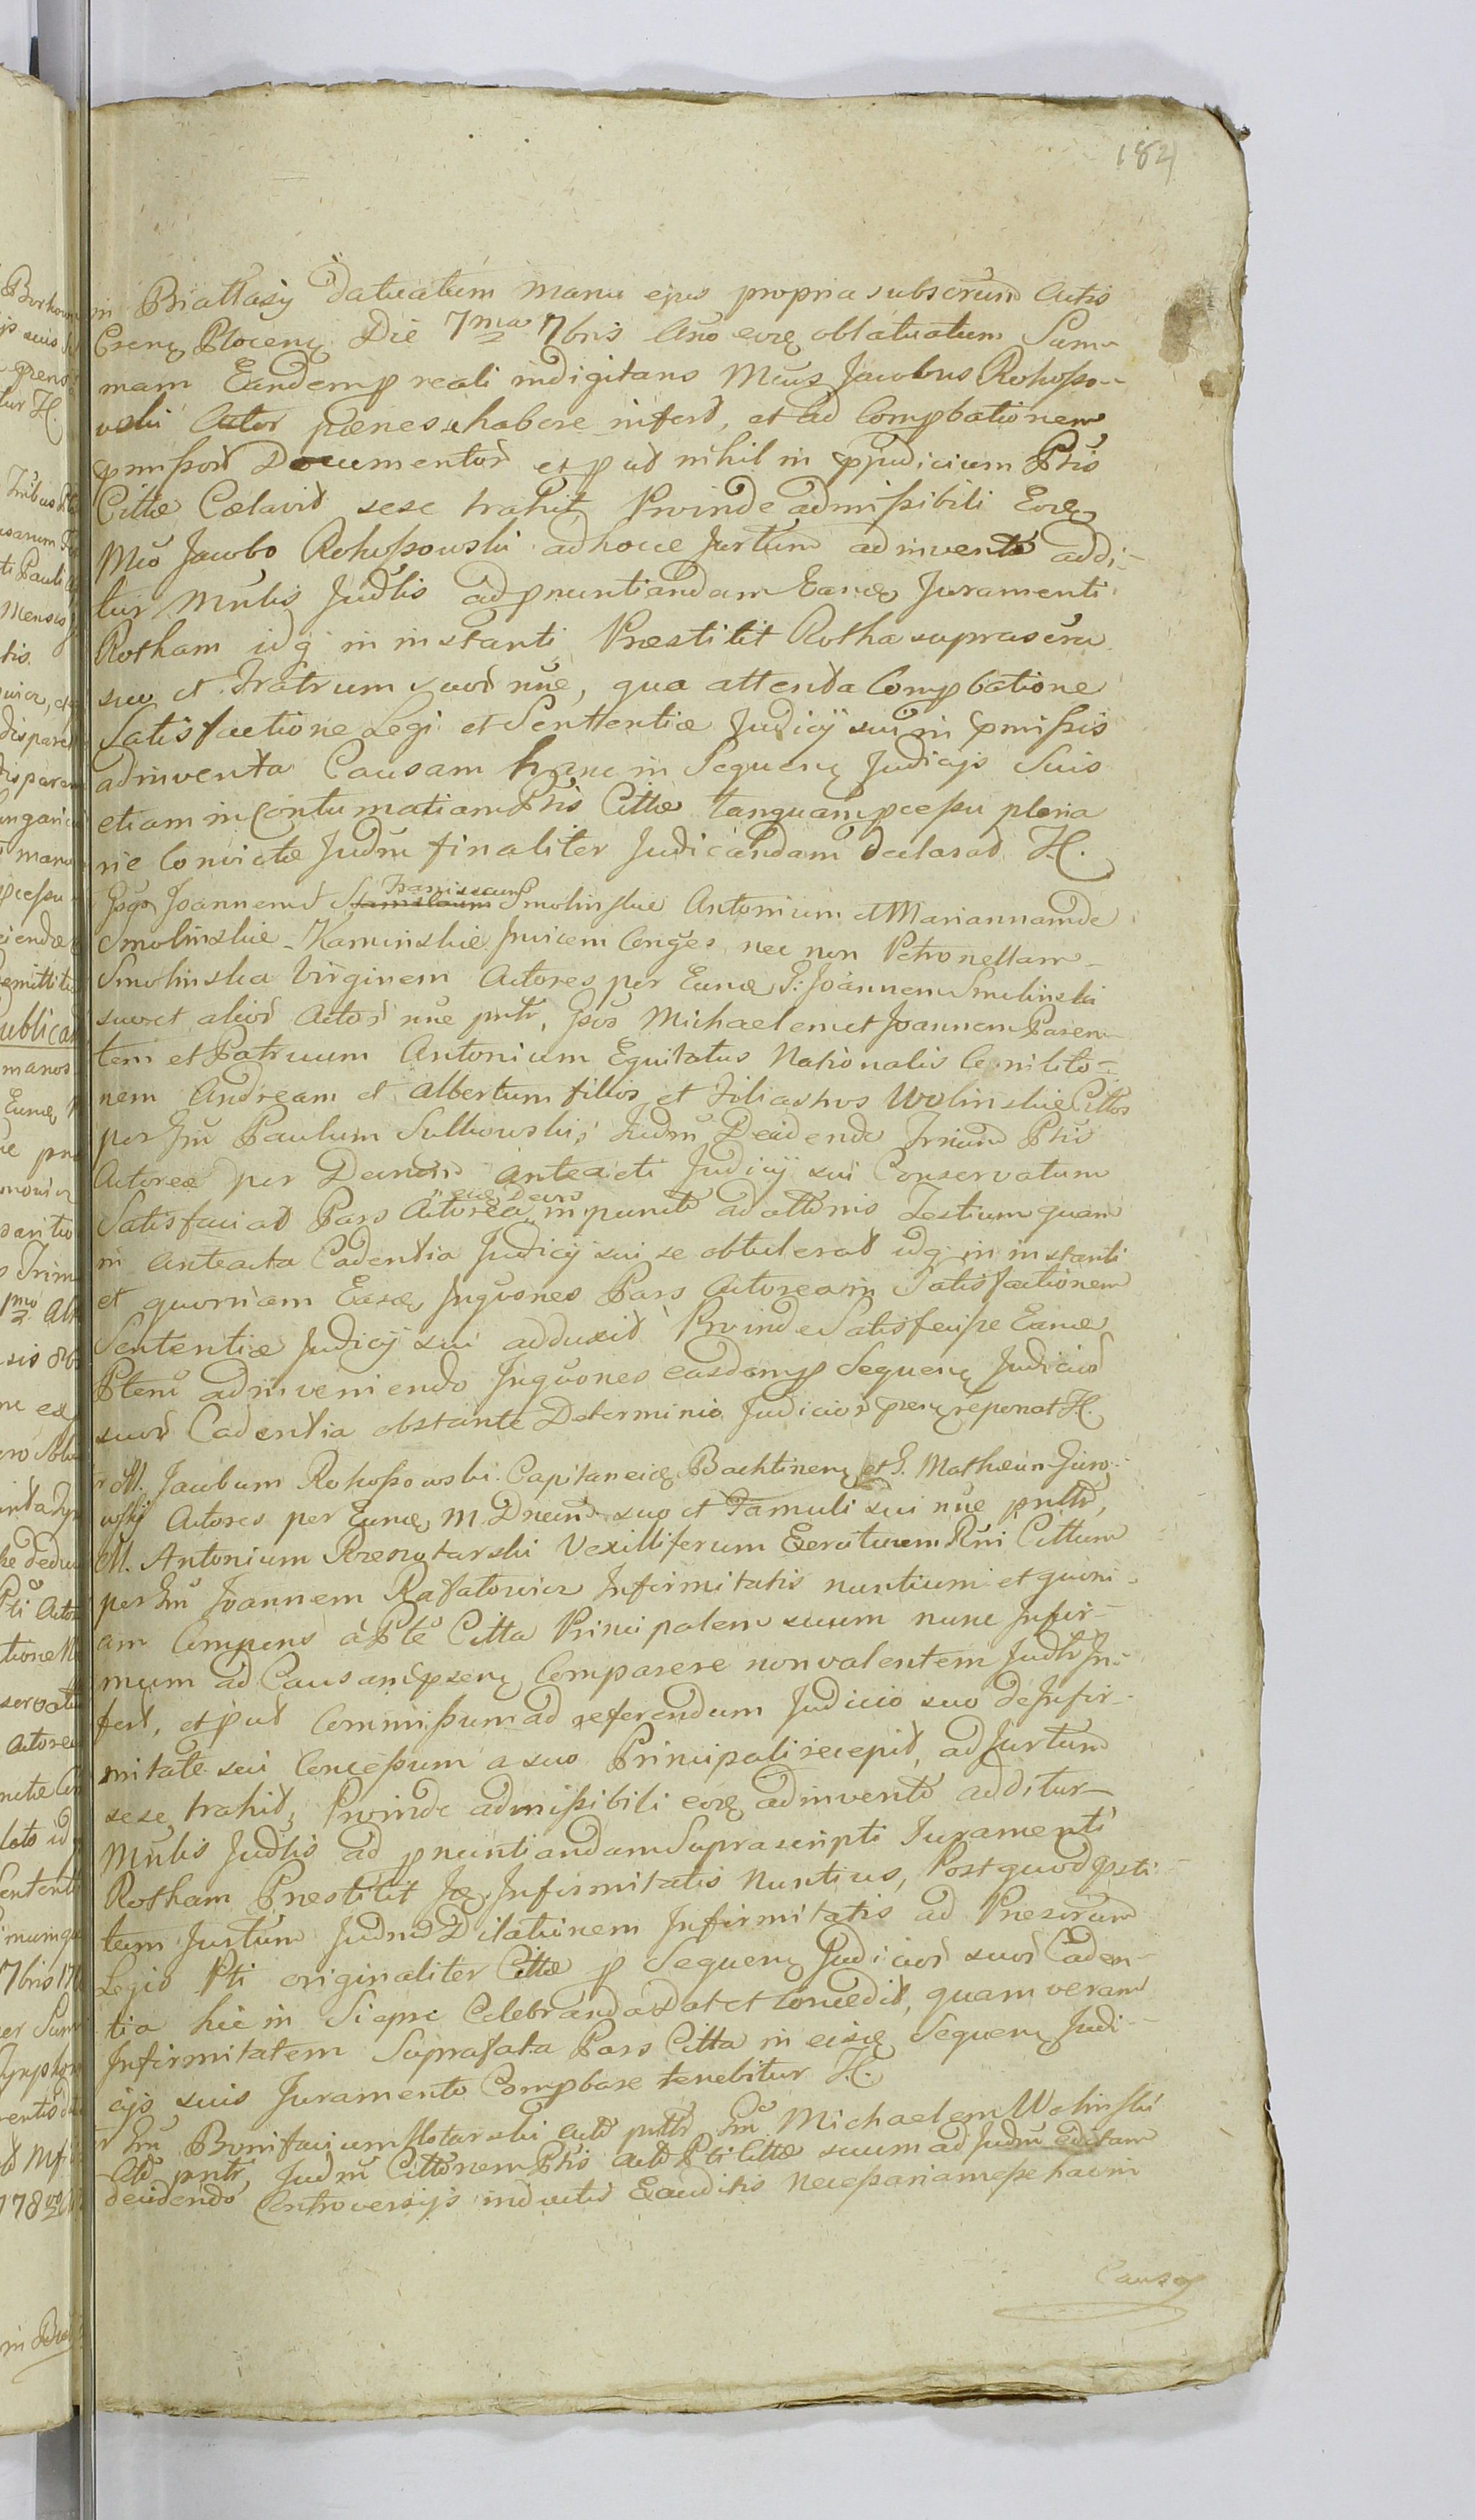 184
in Białłasy datuatum manu ejus propria subscrum Actis
Csrenę Płocenę Die 7ma 7bris Ano eodę oblatuatum Sum-
mam Eandemp reali indigitans Mcus Jacobus Rohoszo-
wski Actor pænes se habere infert, et ad Compbationem
pmissor Documentor et put nihil in pjudicium Ptis
Cittæ Cælavit sese trahit, Proinde admissibili Eodę
Mco Jacobo Rohoszowski adhocce Jurtum adinvento addi-
tur Mnlis Judlis ad pnuntiandam Eandę Juramenti
Rotham idq in instanti Præstitit Rotha suprascra
suo et Fratrum suor nne, qua attenta Compbatione
Satisfactione Legi et Sententiæ Judicij sui in pmissis
adinventa Causam hanc in Sequenę Judicijs Suis
etiam in Contumatiam Ptis Cittæ tanquam pcessu plena
rie Convictæ Judm finaliter Judicandam declarat H.
Franiscum
Gsos Joannem et Stanislaum Smolinskie Antonium et Mariannam de
Smolinskie Kaminskie Invicem Conges nec non Petronellam
Smolinska Virginem Actores per Eunde G. Joannem Smolinski
suo et alior Actor nne pntr, Gsos Michaelem et Joannem Paren-
tem et Patruum Antonium Equitatus Nationalis Comilito-
nem Andream et Albertum filios et Filiastros Wolinskie Cittos
per Gm Paulum Sulkowski; Judm Decidendo Irium Ptis
Actoreæ per Decrum anteacti Judicij sui Conservatum
eidę Decro
Satisfaciat Pars Actorea in puncto adattinis Testium quam
in anteacta Cadentia Judicij sui se obtulerat idq in instanti
et quoniam Easdę Inquones Pars Actorea in Satisfactionem
Sententiæ Judicij sui adduxit Proinde Satisfecisse Eandę
Ptem adinveniendo Inquones easdemp Sequenę Judicior
suor Cadentia obstante Determinio Judicior prenę reponat H.
M. Jacobum Rohoszowski Capitaneidę Bachtinenę et G. Mathæum Giro-
wski Actores per Eundę M. Dnum suo et Famuli sui nne pntr,
M. Antonium Przenotarski Vexilliferum Exercituum Rni Cittum
per Gm Joannem Rafałowicz Infirmitatis nuntium et quoni-
am Compens à Pte Citta Principalem suum nunc Infir-
mum ad Causam psenę Comparere non valentem Judlr In-
fert, et put Commissum ad referendum Judicio suo de Infir-
mitate sui Concessum a suo Principali recepit, ad Jurtum
sese trahit, Proinde admissibili eodę adinvento additur
Mnlis Judlis ad pnuntiandam Suprascripti Juramenti
Rotham Præstitit Idę Infirmitatis Nuntius, Post quod psti-
tum Jurtum Judm Dilationem Infirmitatis ad Præscrum
Legis Pti originaliter Cittæ p Sequenę Judicior suor Caden-
tia hic in Sierpc Celebranda dat et Concedit, quam veram
Infirmitatem Suprafata Pars Citta in eisdę Sequenę Judi-
cijs suis Juramento Compbare tenebitur H.
Gm Bonifacium Notarski Acto pntr Gm Michaelem Wolinski
Cto pntr, Judm Cittonem Ptis Acto Pti Cittæ suum ad Judm editam
decidendo Controversijs inductis Exauditis Necessariam esse hacin
Causa